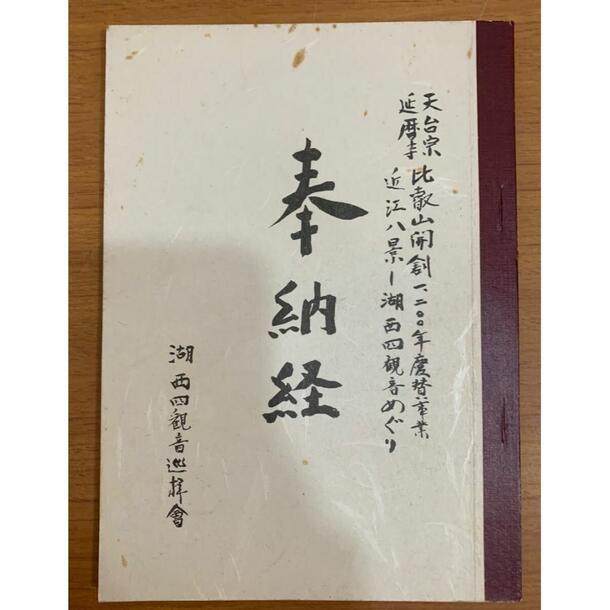 天台宗
延暦寺
比叡山開創一、二〇〇年慶讃事業
近江八景ー湖西四観音めぐり
奉納経
湖西四観音巡拝會